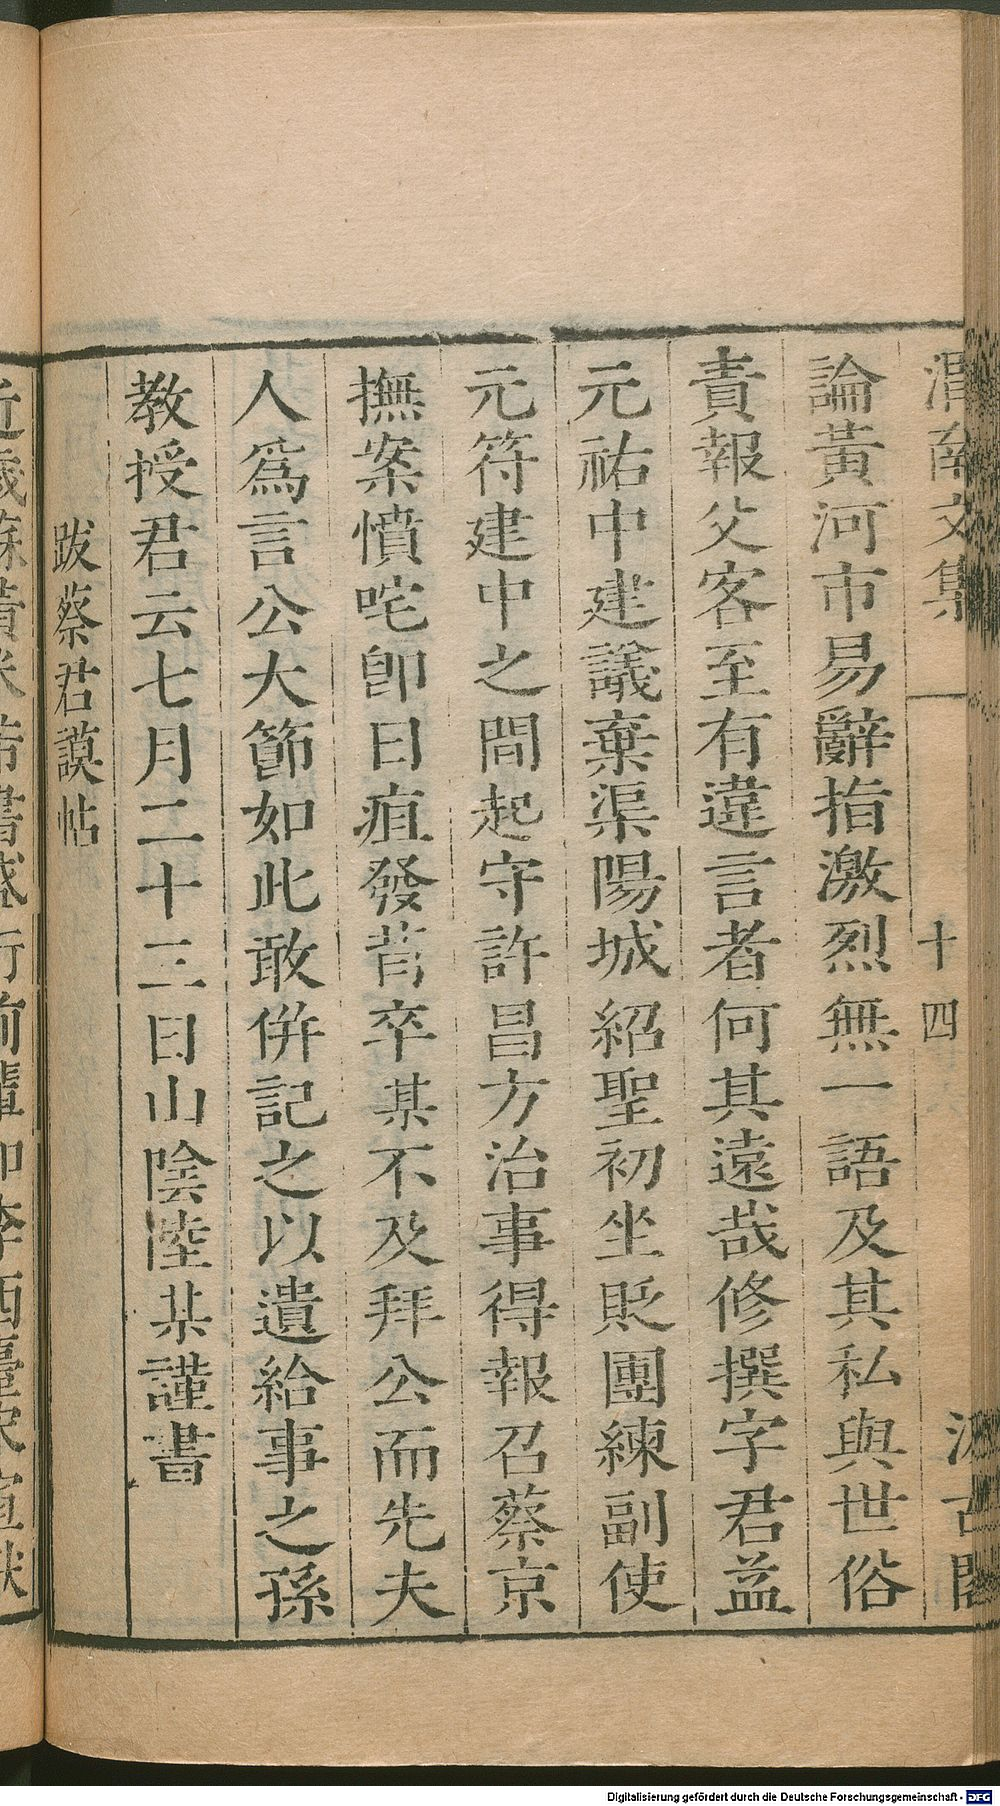 渭南文集 十四 汲古閣
論黃河市易辭指激烈無一語及其私與世俗
責報父客至有違言者何其遠哉修撰字君益
元祐中建議棄渠陽城紹聖初坐貶團練副使
元符建中之間起守許昌方治事得報召蔡京
撫案憤咤卽日疽發背卒某不及拜公而先夫
人爲言公大節如此敢併記之以遺給事之孫
教授君云七月二十三日山陰陸某謹書
跋蔡君謨帖
近歲蘇黃米芾書盛行前輩如李西臺宋宣獻
Digitalisierung gefördert durch die Deutsche Forschungsgemeinschaft - DFG